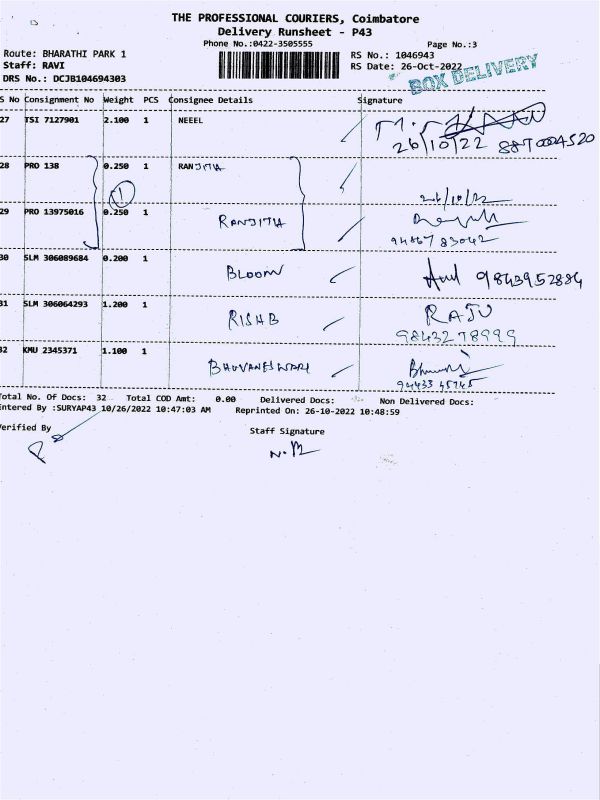 THE PROFESSIONAL COURIERS, Coimbatore
Delivery Runsheet - P43
Phone No.:0422-3505555
Page No.:3
Route: BHARATHI PARK 1
RS No.: 1046943
Staff: RAVI
RS Date: 26-Oct-2022
DRS No.: DCJB104694303
BOX DELIVERY
S No Consignment No Weight PCS Consignee Details Signature
27 TSI 7127901 2.100 1 NEEEL
26/10/22
28 PRO 138 0.250 1 RANJITHA
1
26/10/22
29 PRO 13975016 0.250 1 RANJITHA
94867 83042
30 SLM 306089684 0.200 1 BLOOM 9843952884
31 SLM 306064293 1.200 1 RISHB RAJU
98432 78999
32 KMU 2345371 1.100 1 BHUVANESWARI
94433 45745
Total No. Of Docs: 32 Total COD Amt: 0.00 Delivered Docs: Non Delivered Docs:
Entered By :SURYAP43 10/26/2022 10:47:03 AM Reprinted On: 26-10-2022 10:48:59
Verified By
Staff Signature